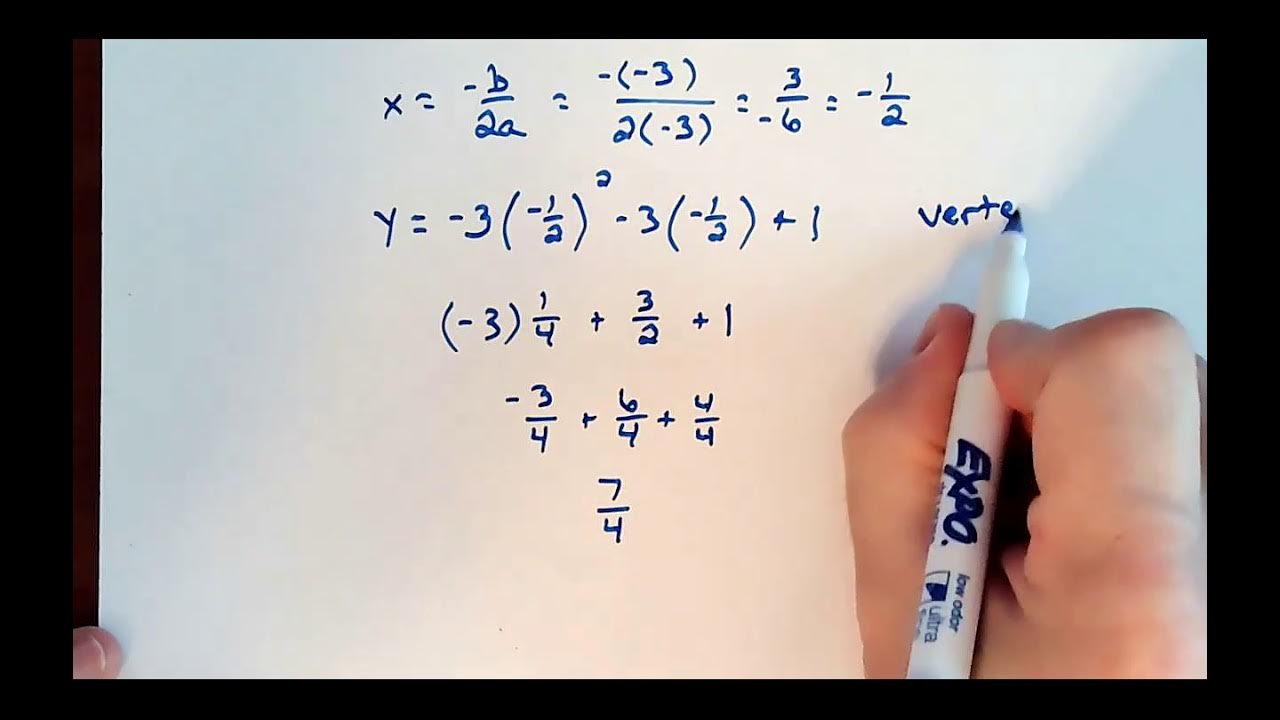 x = -b/2a = -(-3)/2(-3) = 3/-6 = -1/2
y = -3(-1/2)² -3(-1/2) + 1 verte
(-3) 1/4 + 3/2 + 1
-3/4 + 6/4 + 4/4
7/4
EXPO.
low odor
ultra